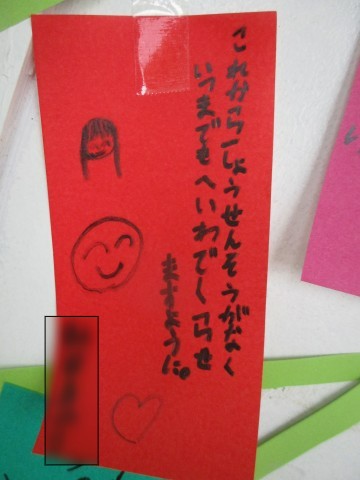 これからいっしょうせんそうがなく
いつまでもへいわでくらせ
ますように。